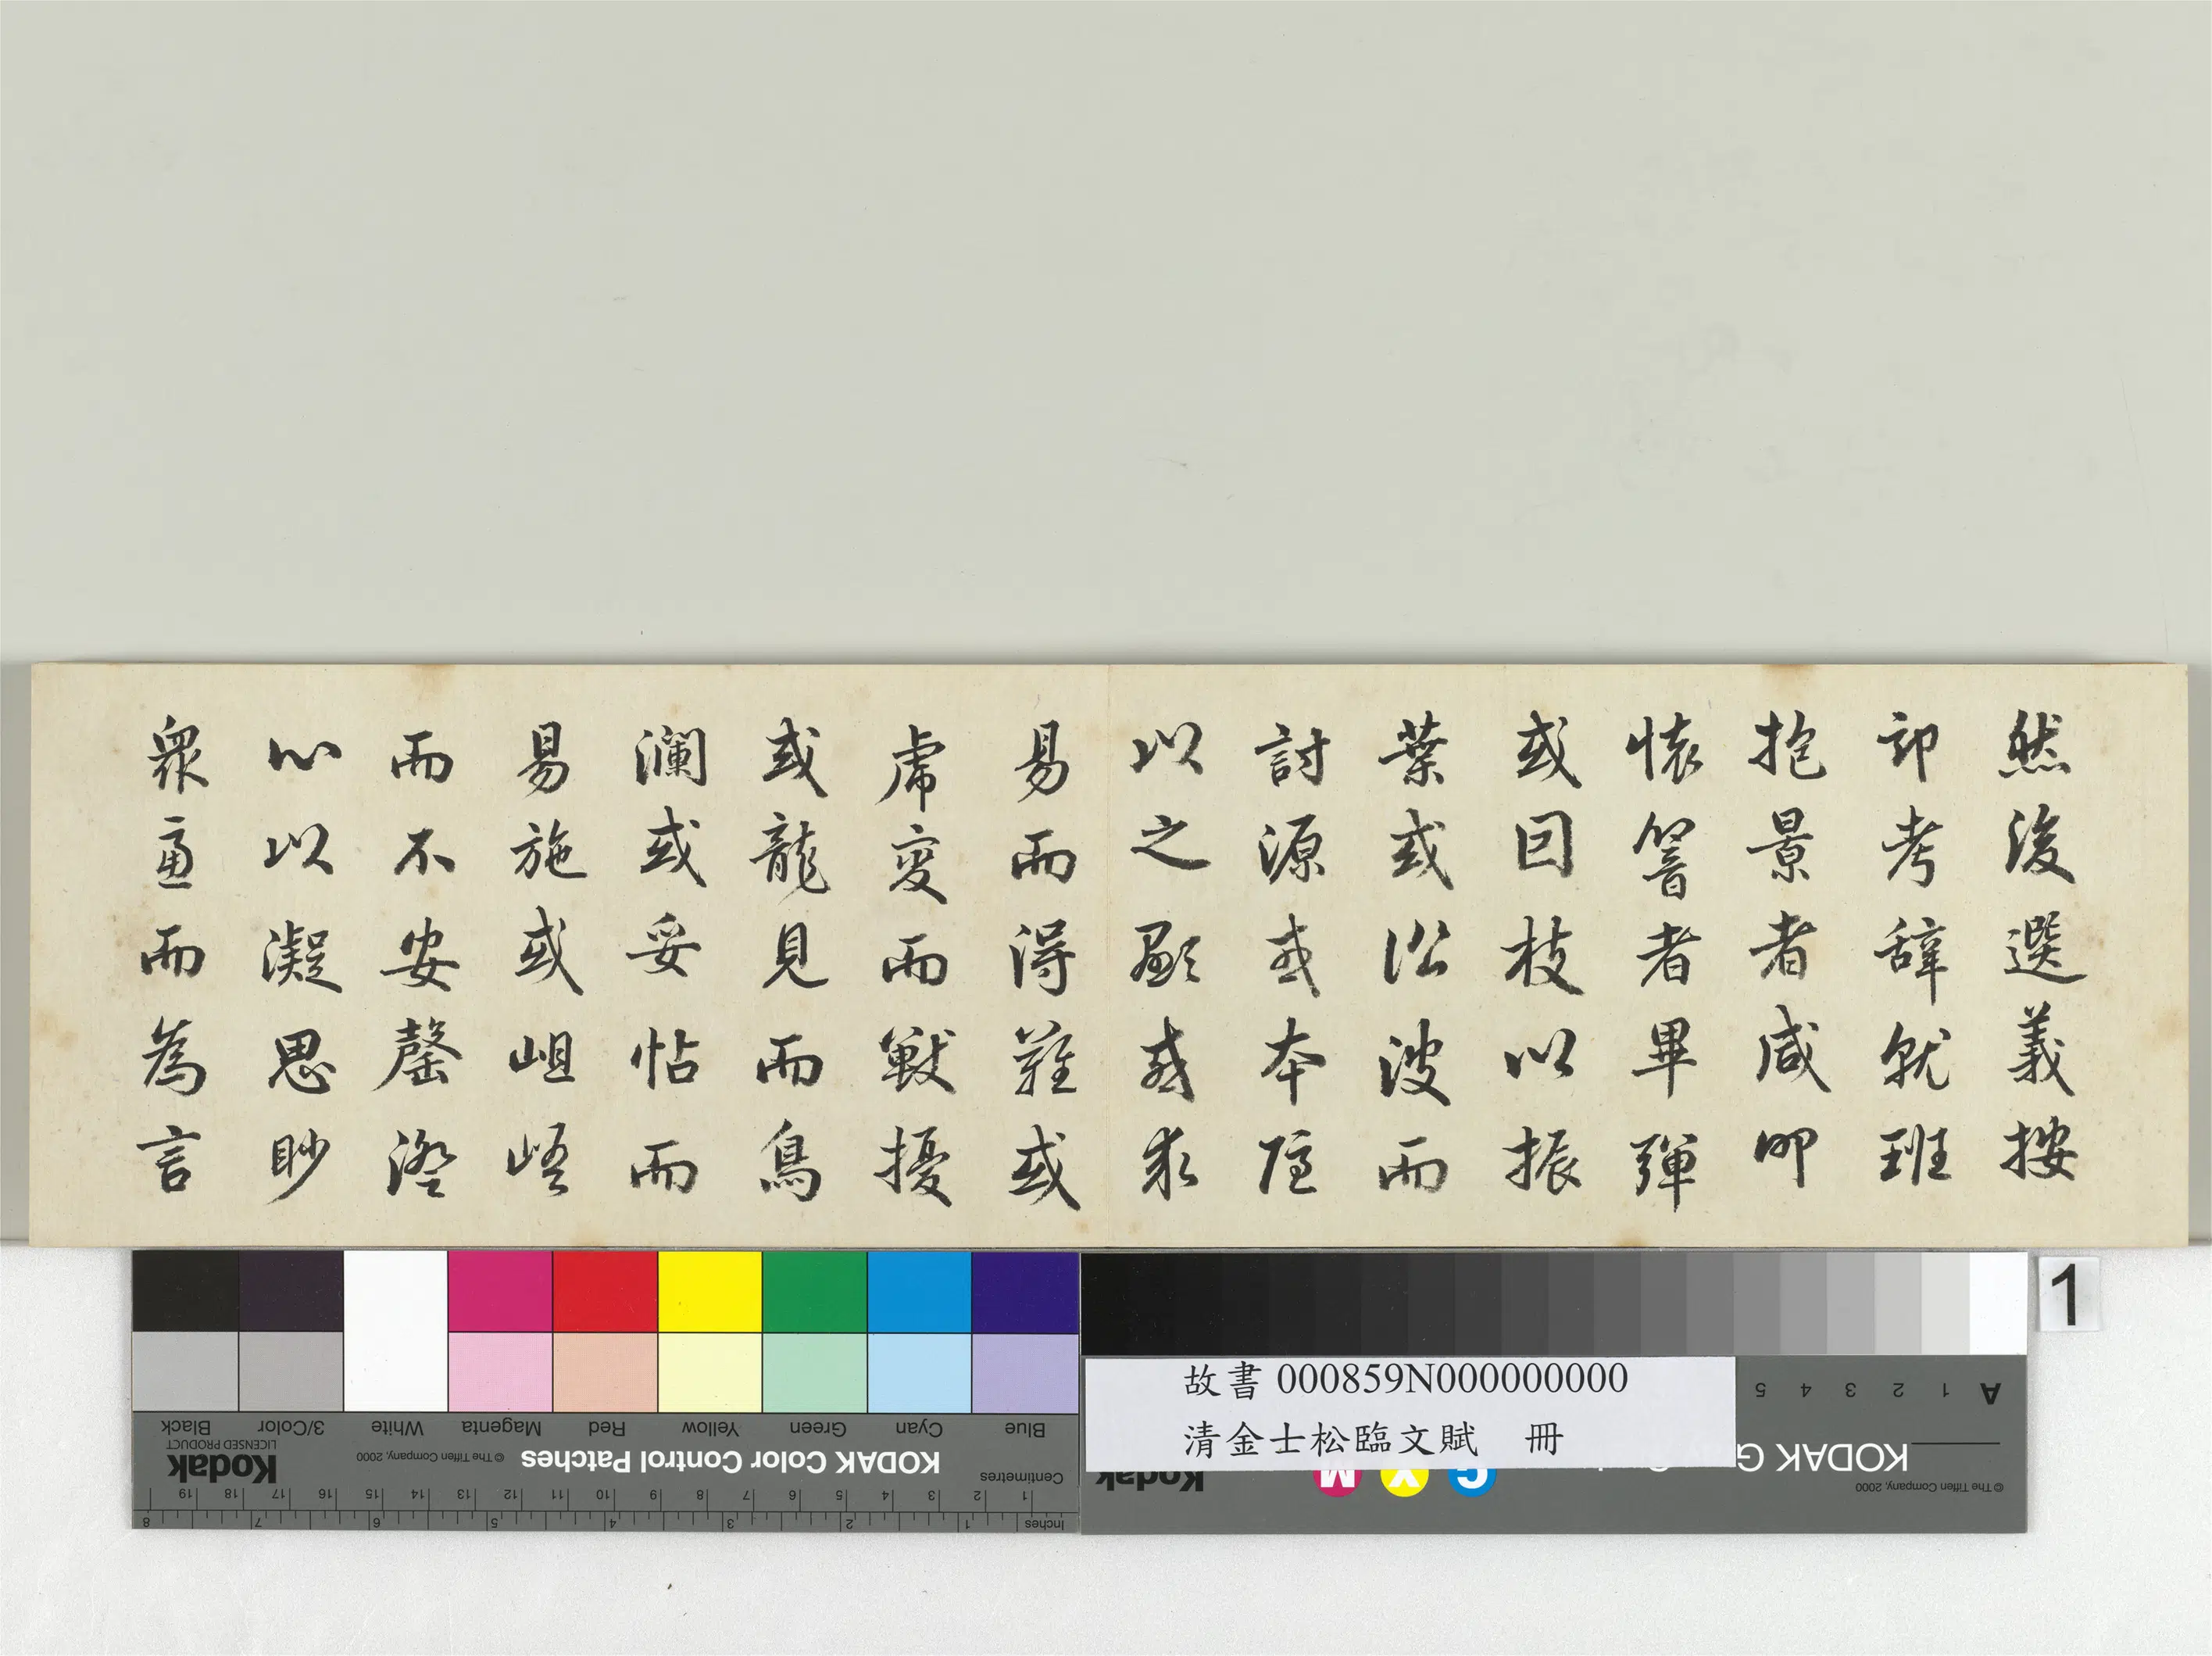 然後選義按
部考辭就班
抱景者咸叩
懷響者畢彈
或因枝以振
葉或沿波而
討源或本隱
以之顯或求
易而得難或
虎變而獸擾
或龍見而鳥
瀾或妥帖而
易施或岨峿
而不安罄澄
心以凝思眇
眾慮而為言
1
故書 000859N000000000
清金士松臨文賦 冊
KODAK Color Control Patches
© The Tiffen Company, 2000
Kodak
LICENSED PRODUCT
Blue Cyan Green Yellow Red Magenta White 3/Color Black
Centimetres 1 2 3 4 5 6 7 8 9 10 11 12 13 14 15 16 17 18 19
Inches 1 2 3 4 5 6 7 8
A 1 2 3 4 5
KODAK G
© The Tiffen Company, 2000
Kodak
C Y M